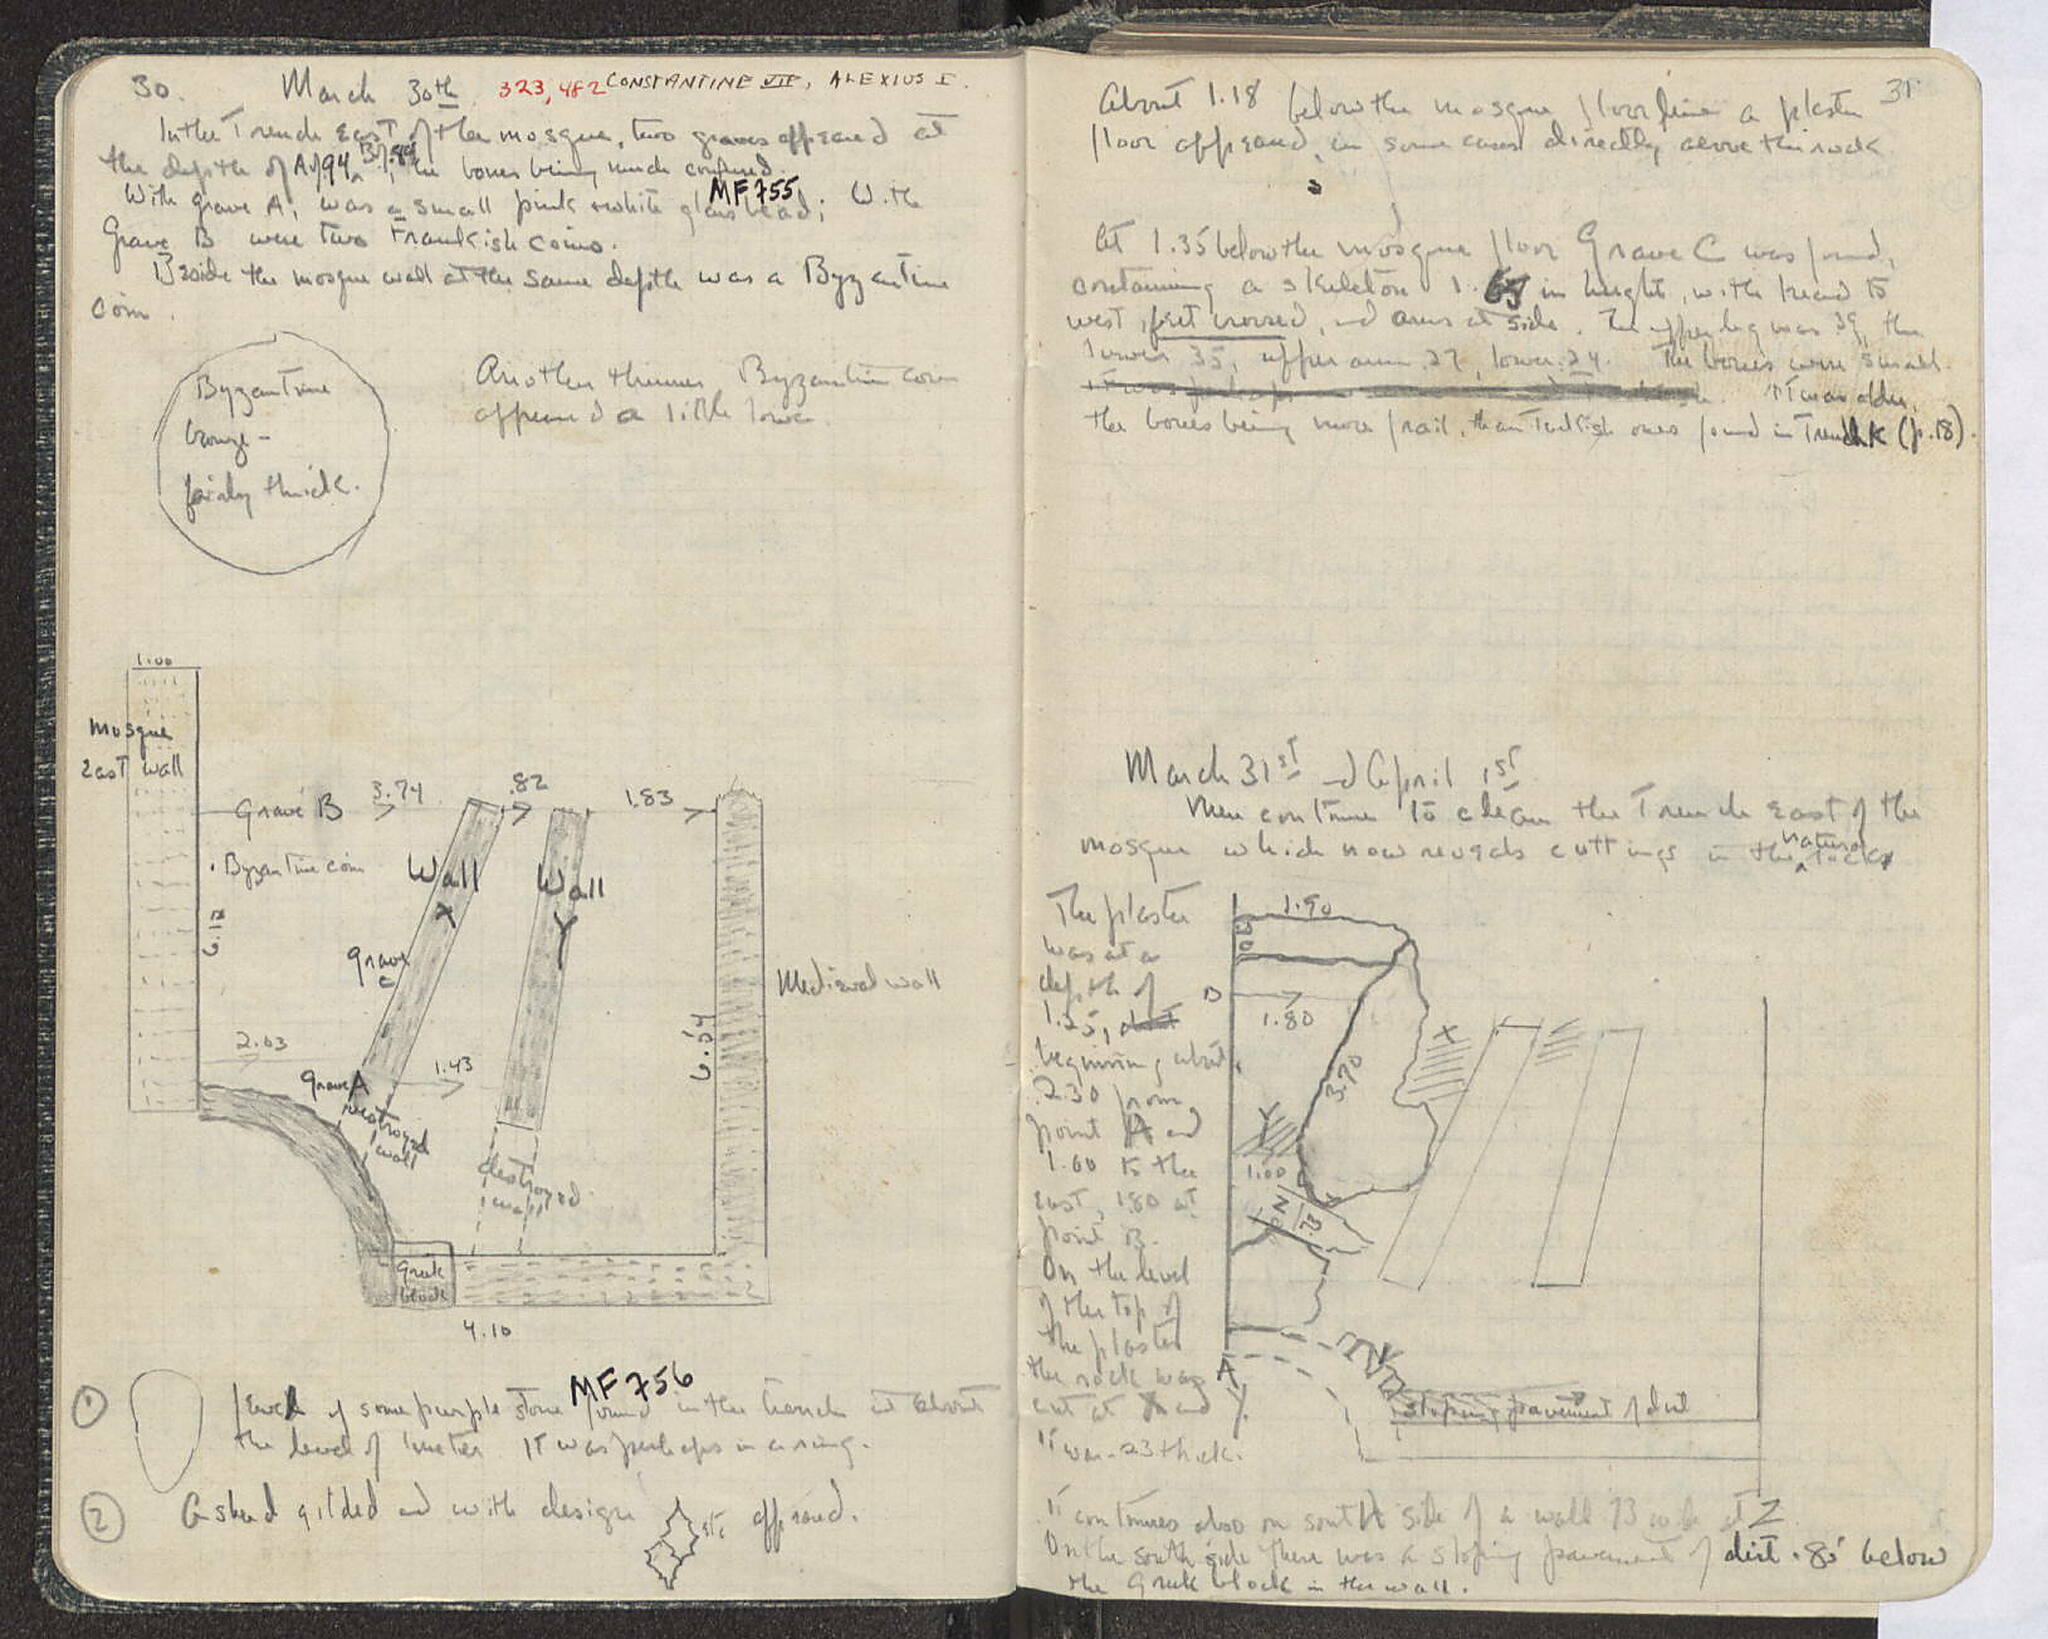 30.
March 30th 323, 482 CONSTANTINE VII, ALEXIUS I.
In the Trench East of the mosque, two graves appeared at
the depth of A/.94, B/.94, the bones being much confused.
With grave A, was a small pink & white glass bead; With
MF 755
Grave B were two Frankish coins.
Beside the mosque wall at the same depth was a Byzantine
coin.
Byzantine
bronze -
fairly thick.
Another thinner Byzantine coin
appeared a little lower.
1.00
Mosque
East wall
Grave B
3.74
.82
1.83
Byzantine coin
Wall
X
Wall
Y
6.12
Grave
C
Medieval wall
2.03
Grave A
1.43
destroyed
wall
destroyed
wall
Greek
block
4.10
1
of some purple stone found in the trench at about
MF 756
the level of 1 meter. It was perhaps in a ring.
2
A sherd gilded and with design etc appeared.
31
About 1.18 below the mosque floor line a plaster
floor appeared, in some cases directly above the rock.
At 1.35 below the mosque floor Grave C was found,
containing a skeleton in height, with head to
west, feet crossed, and arms at side. The upper leg was 39, the
lower 35, upper arm .27, lower .24. The bones were small.
It was older,
the bones being more frail, than Turkish ones found in Trench K (p. 18).
March 31st and April 1st
Men continue to clean the Trench East of the
mosque which now reveals cuttings in the natural rock
The plaster
was at a
depth of
1.25,
beginning about
2.30 from
point A and
1.00 to the
east, 1.80 at
point B.
On the level
of the top of
the plaster
the rock was
cut at X and Y.
It was .23 thick.
1.90
B
1.80
X
3.70
Y
1.00
Z
.73
A
sloping pavement of dirt
It continues also on south side of a wall 73 wide at Z
On the south side there was a sloping pavement of dirt .85 below
the Greek block in the wall.